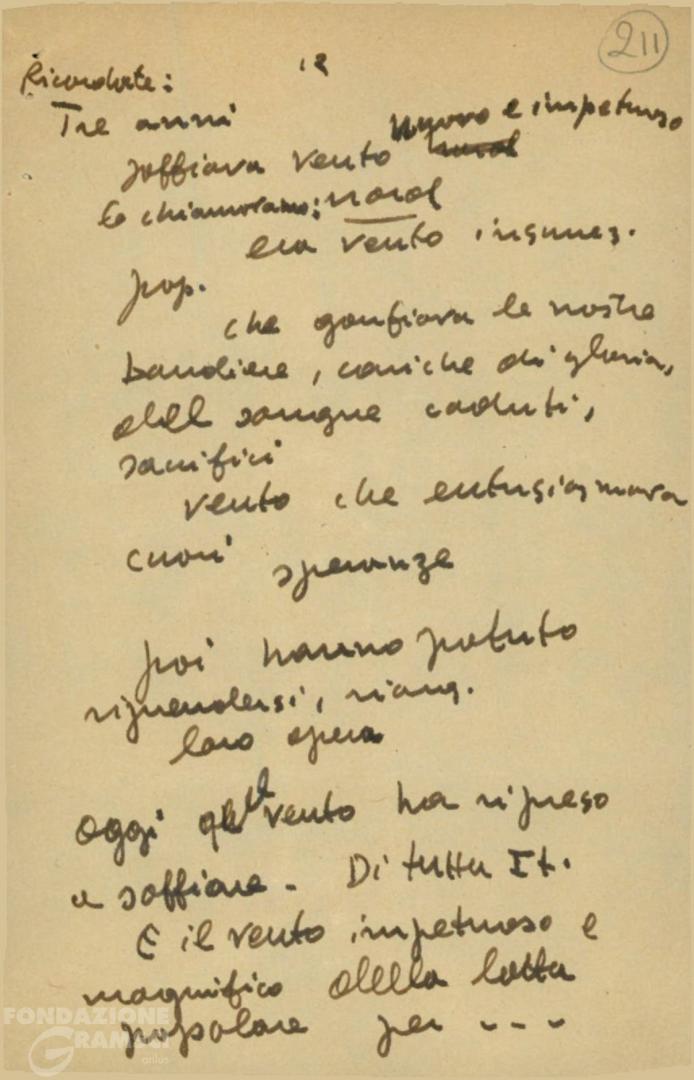 211
12
Ricordate:
Tre anni
nuovo e impetuoso
soffiava vento nord
Lo chiamavamo: nord
era vento insurrez.
pop.
che gonfiava le nostre
bandiere, cariche di gloria,
dell sangue caduti,
sacrifici
vento che entusiasmava
cuori speranze
poi hanno potuto
riprendersi, riorg.
loro opera
Oggi quel vento ha ripreso
a soffiare. Di tutta It.
È il vento impetuoso e
magnifico della lotta
popolare per ---
FONDAZIONE
GRAMSCI
onlus